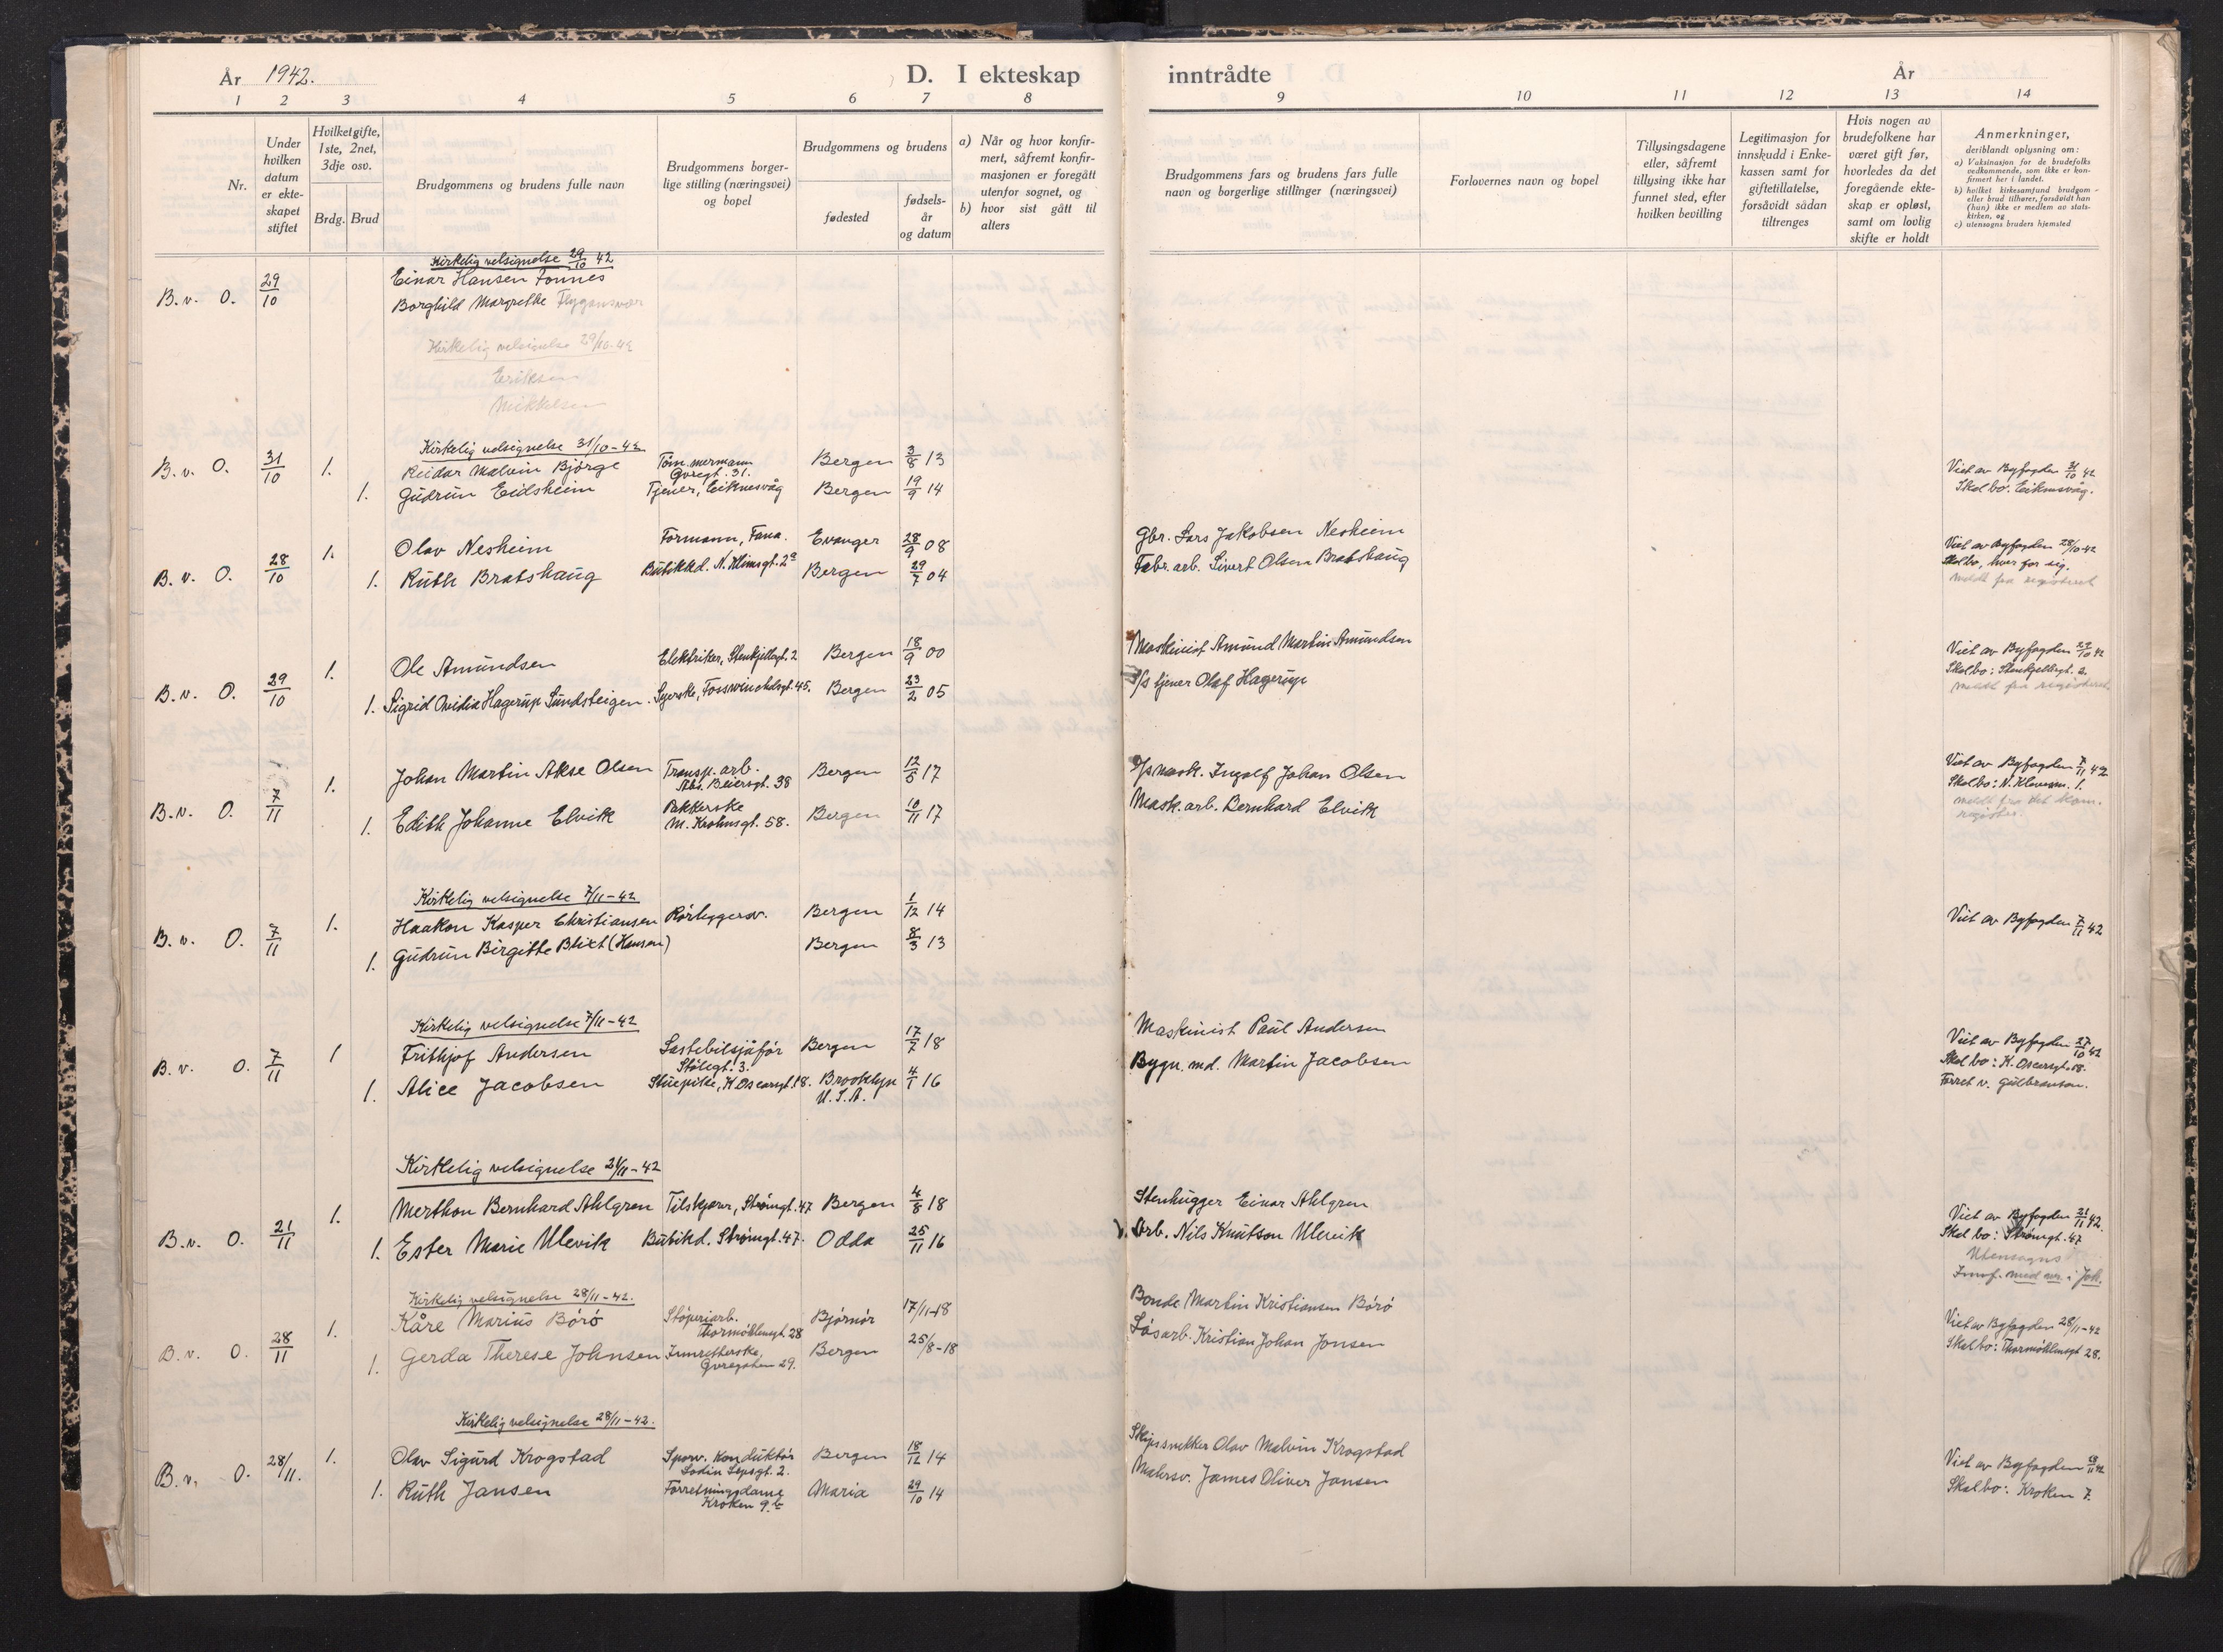 År 1942.
D. I ekteskap
inntrådte
År
1 2 3 4 5 6 7 8 9 10 11 12 13 14
Nr.
Under hvilken datum er ekteskapet stiftet
Hvilket gifte, 1ste, 2net, 3dje osv.
Brdg. Brud
Brudgommens og brudens fulle navn
Brudgommens borgerlige stilling (næringsvei) og bopel
Brudgommens og brudens
fødested
fødselsår og datum
a) Når og hvor konfirmert, såfremt konfirmasjonen er foregått utenfor sognet, og
b) hvor sist gått til alters
Brudgommens fars og brudens fars fulle navn og borgerlige stillinger (næringsvei)
Forlovernes navn og bopel
Tillysingsdagene eller, såfremt tillysing ikke har funnet sted, efter hvilken bevilling
Legitimasjon for innskudd i Enkekassen samt for giftetillatelse, forsåvidt sådan tiltrenges
Hvis nogen av brudefolkene har været gift før, hvorledes da det foregående ekteskap er opløst, samt om lovlig skifte er holdt
Anmerkninger, deriblandt oplysning om:
a) Vaksinasjon for de brudefolks vedkommende, som ikke er konfirmert her i landet.
b) hvilket kirkesamfund brudgom eller brud tilhører, forsåvidt han (hun) ikke er medlem av statskirken, og
c) utensogns bruders hjemsted
Kirkelig velsignelse 29/10 42
B.v. O. 29/10 Einar Hansen Tonnes
Borghild Margrethe Flygansvær
Kirkelig velsignelse 29/10-42
Eriksen
Mikkelsen
Kirkelig velsignelse 31/10-42
B.v. O. 31/10 1. Reidar Malvin Bjørge Tømmermann Øvregt. 31. Bergen 3/8 13
1. Gudrun Eidsheim Tjener, Eiknesvåg Bergen 19/9 14
Viet av Byfogden 31/10 42
Skal bo: Eiknesvåg.
B.v. O. 28/10 1. Olav Nesheim Formann, Fana. Evanger 28/9 08 Gbr. Lars Jakobsen Nesheim
1. Ruth Bratshaug Butikkd. N. Klimsgt. 2a Bergen 29/7 04 Fabr. arb. Sivert Olsen Bratshaug
Viet av Byfogden 28/10-42
Skal bo, hver for sig.
meldt fra registeret
B.v. O. 29/10 1. Ole Amundsen Elektriker, Stenkjellergt. 2 Bergen 18/9 00 Maskinist Amund Martin Amundsen
1. Sigrid Ovidia Hagerup Sundsteigen. Syerske, Fosswinckelsgt. 45. Bergen 23/2 05 D/S tjener Olaf Hagerup
Viet av Byfogden 29/10 42
Skal bo: Stenkjellergt. 2.
meldt fra registeret
B.v. O. 7/11 1. Johan Martin Akse Olsen Transp. arb. Abs. Beiersgt. 38 Bergen 12/5 17 D/S mask. Ingolf Johan Olsen
1. Edith Johanne Elvik Pakkerske M. Krohnsgt. 58. Bergen 10/11 17 Mask. arb. Bernhard Elvik
Viet av Byfogden 7/11 42
Skal bo: N. Klevesm. 1.
Kirkelig velsignelse 7/11-42
B.v. O. 7/11 1. Haakon Kasper Christiansen Rørleggersv. Bergen 1/12 14
1. Gudrun Birgitte Blixt (Hansen) Bergen 8/3 13
Viet av Byfogden 7/11 42
Kirkelig velsignelse 7/11-42
B.v. O. 7/11 1 Frithjof Andersen Lastebilsjåfør Stølegt. 3. Bergen 17/7 18 Maskinist Paul Andersen
1. Alice Jacobsen Stuepike, K. Oscarsgt. 18. Brooklyn U.S.A. 4/1 16 Bygn. md. Martin Jacobsen
Viet av Byfogden 27/10 42
Skal bo: K. Oscarsgt. 18.
Forret v. Gulbranson.
Kirkelig velsignelse 21/11-42
B.v. O. 21/11 1. Merthon Bernhard Ahlgren Tilskjærer, Strømgt. 47 Bergen 4/8 18 Stenhugger Einar Ahlgren
1. Ester Marie Ulevik Butikd. Strømgt. 47. Odda 25/11 16 Arb. Nils Knutson Ulevik
Viet av Byfogden 21/11 42.
Skal bo: Strømgt. 47
Utensogns
Innf. med nr. i Joh.
Kirkelig velsignelse 28/11-42.
B.v. O. 28/11 1. Kåre Marius Børø Støperiarb. Thormøhlensgt 28 Bjørnør 17/11-18 Bonde Martin Kristiansen Børø
1. Gerda Therese Johnsen Innretterske, Øvregaten 29. Bergen 25/8-18 Løsarb. Kristian Johan Jonsen
Viet av Byfogden 28/11-42
Skal bo: Thormøhlensgt 28.
Kirkelig velsignelse 28/11-42.
B.v. O. 28/11. 1. Olav Sigurd Krogstad Sporv. konduktør Lodin Lepsgt. 2. Bergen 18/12 14 Skipssnekker Olav Malvin Krogstad
1. Ruth Jansen Forretningsdame Kroken 9. Maria 29/10 14 Malersv. James Oliver Jansen
Viet av Byfogden 28/11 42
Skal bo: Kroken 7.